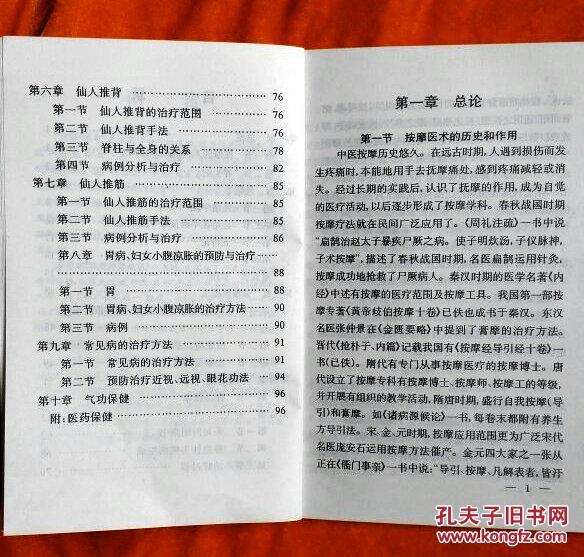 第六章 仙人推背 …………………… 76
第一节 仙人推背的治疗范围 …………… 76
第二节 仙人推背手法 …………………… 76
第三节 脊柱与全身的关系 ……………… 78
第四节 病例分析与治疗 ………………… 82
第七章 仙人推筋 …………………… 85
第一节 仙人推筋的治疗范围 …………… 85
第二节 仙人推筋手法 …………………… 85
第三节 病例分析与治疗 ………………… 86
第八章 胃病、妇女小腹凉胀的预防与治疗 ……
…………………… 88
第一节 胃 …………………… 88
第二节 胃病、妇女小腹凉胀的治疗方法 … 90
第三节 病例 …………………… 90
第九章 常见病的治疗方法 …………… 91
第一节 常见病的治疗方法 ……………… 91
第二节 预防治疗近视、远视、眼花功法 …… 94
第十章 气功保健 …………………… 96
附:医药保健 …………………… 96
第一章 总论
第一节 按摩医术的历史和作用
中医按摩历史悠久。在远古时期,人遇到损伤而发
生疼痛时,本能地用手去抚摩痛处,感到疼痛减轻或消
失。经过长期的实践后,认识了抚摩的作用,成为自觉
的医疗活动,以后逐步形成了按摩学科。春秋战国时期
按摩疗法就在民间广泛应用了。《周礼注疏》一书中说
“扁鹊治赵太子暴疾尸厥之病。使子明炊汤,子仪脉神,
子术按摩”,描述了春秋战国时期,名医扁鹊运用针灸、
按摩成功地抢救了尸厥病人。秦汉时期的医学名著《内
经》中述有按摩的医疗范围及按摩工具。我国第一部按
摩专著《黄帝歧伯按摩十卷》已佚也成书于秦汉。东汉
名医张仲景在《金匮要略》中提到了膏摩的治疗方法。
晋代《抢朴子、内篇》记载我国有《按摩经导引经十卷》一
书(已佚)。隋代有专门从事按摩医疗的按摩博士。唐
代设立了按摩专科有按摩博士、按摩师、按摩工的等级,
并开展有组织的教学活动,隋唐时期,盛行自我按摩(导
引)和膏摩。如《诸病源候论》一书,每卷末都附有养生
方导引法。宋、金、元时期,按摩应用范围更为广泛宋代
名医庞安石运用按摩方法催产。金元四大家之一张从
正在《儒门事亲》一书中说:“导引、按摩、凡解表者,皆汗
— 1 —
孔夫子旧书网
www.kongfz.com